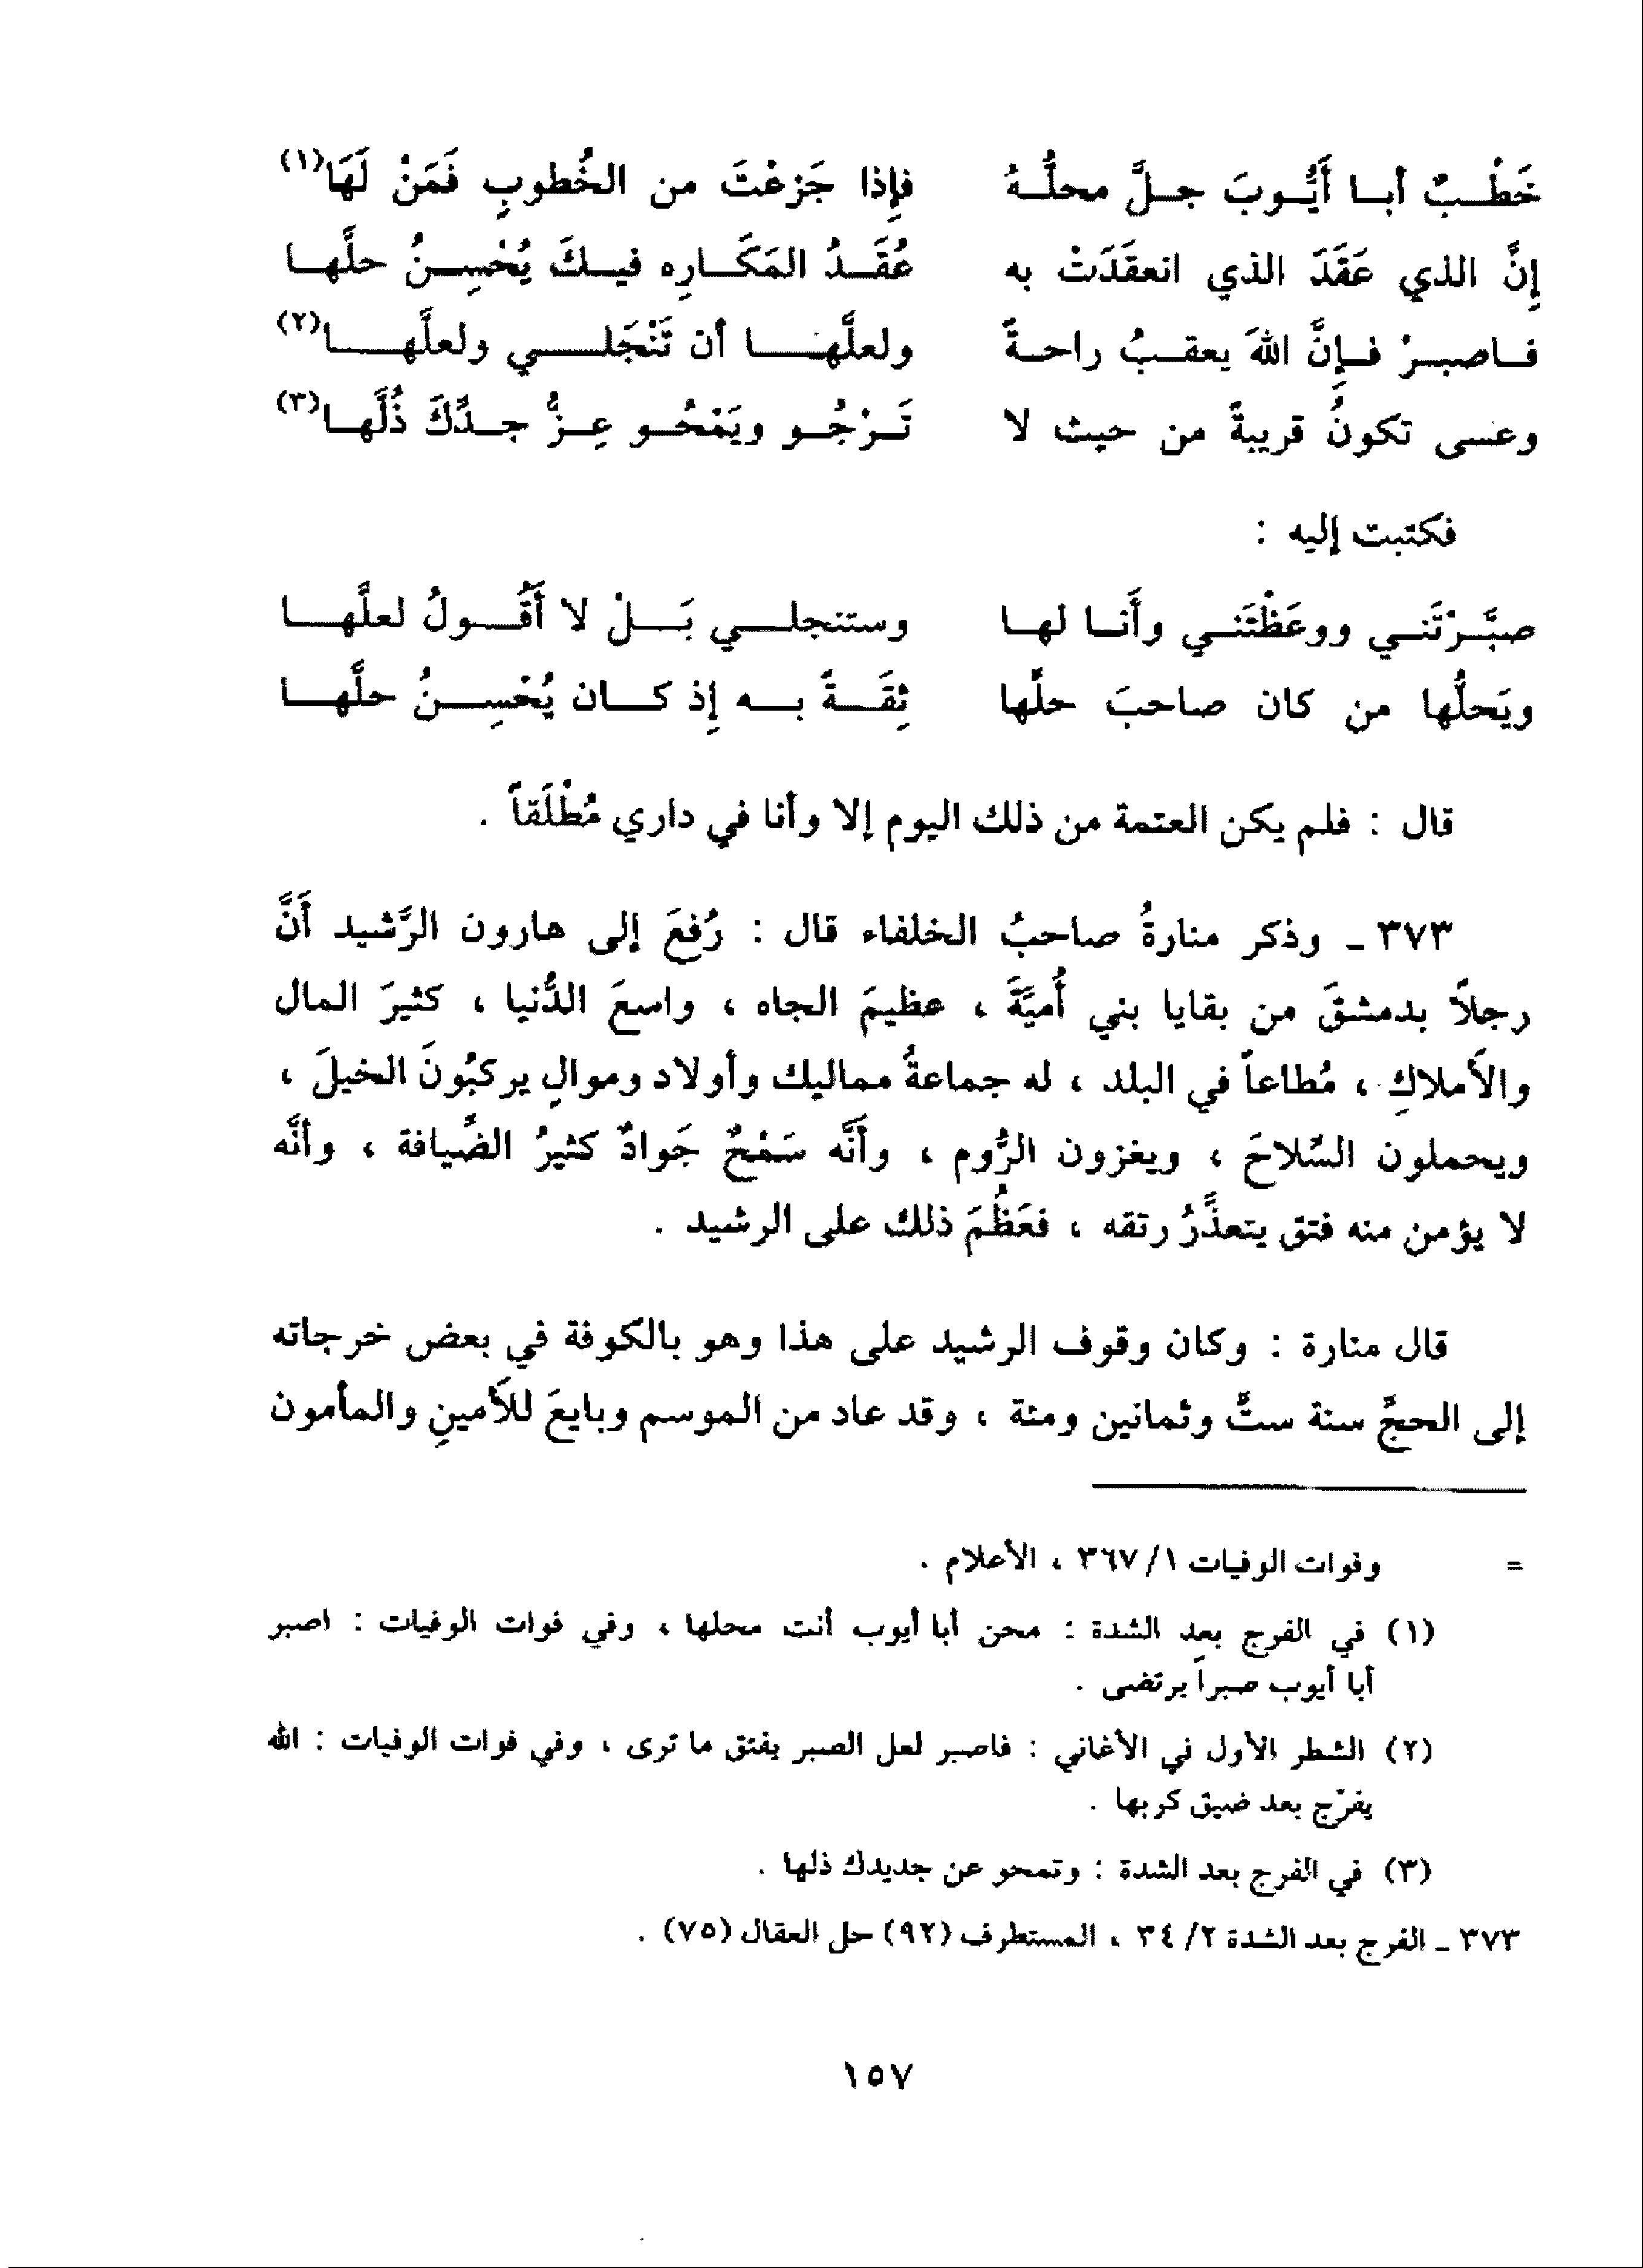 خَطْبٌ أبا أَيُّوبَ جلَّ محلُّهُ فإِذا جَزعْتَ من الخُطوبِ فَمَنْ لَهَا(١)
إِنَّ الذي عَقَدَ الذي انعقَدَتْ به عُقَدُ المَكَارِه فيكَ يُحْسِنُ حلَّها
فاصبرْ فإِنَّ اللهَ يعقبُ راحةً ولعلَّها أن تَنْجَلي ولعلَّها(٢)
وعسى تكونُ قريبةً من حيث لا تَرْجُو ويَمْحُو عِزُّ جدِّكَ ذُلَّها(٣)
فكتبت إليه :
صبَّرْتَني ووعَظْتَني وأَنا لها وستنجلي بَلْ لا أَقُولُ لعلَّها
ويَحلُّها من كان صاحبَ حلِّها ثِقَةً به إِذ كان يُحْسِنُ حلَّها
قال : فلم يكن العتمة من ذلك اليوم إلا وأنا في داري مُطْلَقاً .
٣٧٣ ـ وذكر منارةُ صاحبُ الخلفاء قال : رُفعَ إلى هارون الرَّشيد أَنَّ
رجلاً بدمشقَ من بقايا بني أُميَّةَ ، عظيمَ الجاه ، واسعَ الدُّنيا ، كثيرَ المال
والأَملاكِ ، مُطاعاً في البلد ، له جماعةُ مماليك وأولاد وموالٍ يركبُونَ الخيلَ ،
ويحملون السِّلاحَ ، ويغزون الرُّوم ، وأَنَّه سَمْحٌ جَوادٌ كثيرُ الضِّيافة ، وأنَّه
لا يؤمن منه فتق يتعذَّرُ رتقه ، فعَظُمَ ذلك على الرشيد .
قال منارة : وكان وقوف الرشيد على هذا وهو بالكوفة في بعض خرجاته
إلى الحجِّ سنة ستٍّ وثمانين ومئة ، وقد عاد من الموسم وبايعَ للأَمينِ والمأمون
= وفوات الوفيات ١/ ٣٦٧ ، الأعلام .
(١) في الفرج بعد الشدة : محن أبا أيوب أنت محلها ، وفي فوات الوفيات : اصبر
أبا أيوب صبراً يرتضى .
(٢) الشطر الأول في الأغاني : فاصبر لعل الصبر يفتق ما ترى ، وفي فوات الوفيات : الله
يفرّج بعد ضيق كربها .
(٣) في الفرج بعد الشدة : وتمحو عن جديدك ذلها .
٣٧٣ ـ الفرج بعد الشدة ٢/ ٣٤ ، المستطرف (٩٢) حل العقال (٧٥) .
١٥٧